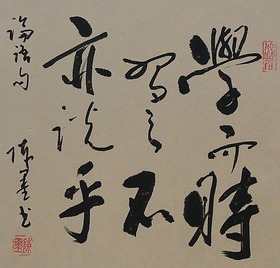 學而時
習之不
亦說乎
論語句
陳書